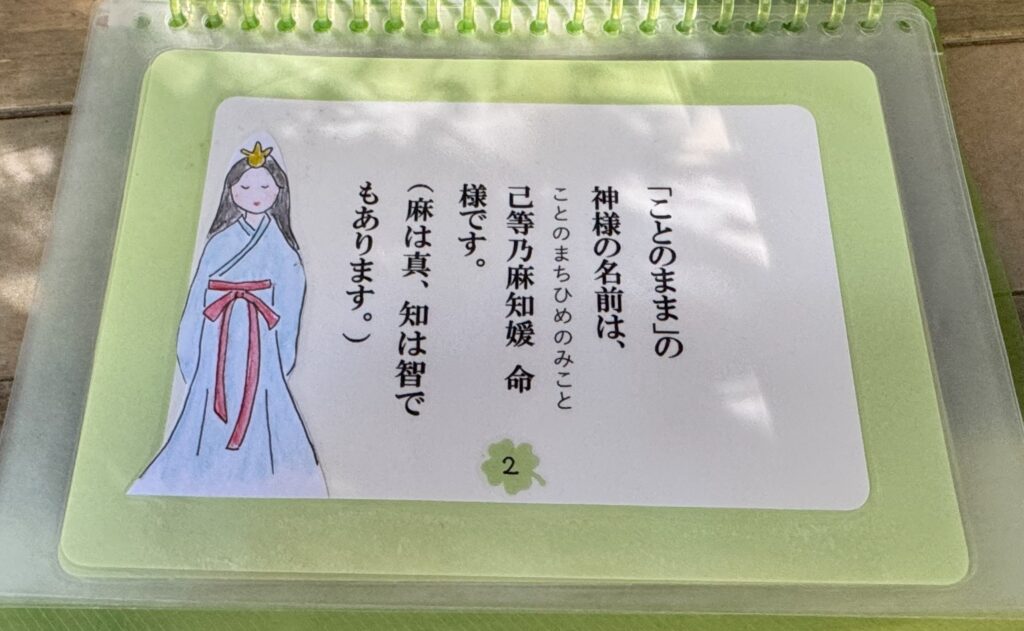 「ことのまま」の
神様の名前は、
ことのまちひめのみこと
己等乃麻知媛 命
様です。
(麻は真、知は智で
もあります。)
2